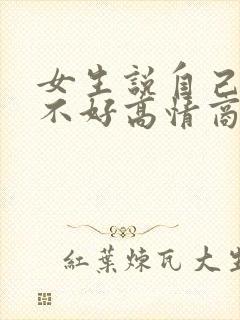 女生說自己
不好高情商
紅葉煉瓦大生